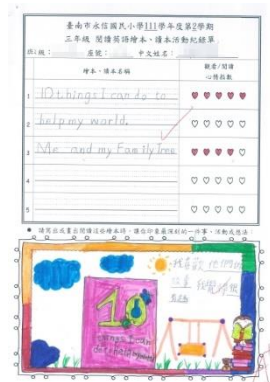 臺南市永信國民小學111學年度第2學期
三年級 閱讀英語繪本、讀本活動紀錄單
班級： 座號： 中文姓名：
繪本、讀本名稱
觀看/閱讀
心情指數
1 10 things I can do to
2 help my world.
3 Me and my Family Tree
4
5
● 請寫出或畫出閱讀這份繪本時，讓你印象最深刻的一件事、活動或想法：
我喜歡 他們的
故事 我覺得很
10
things I can